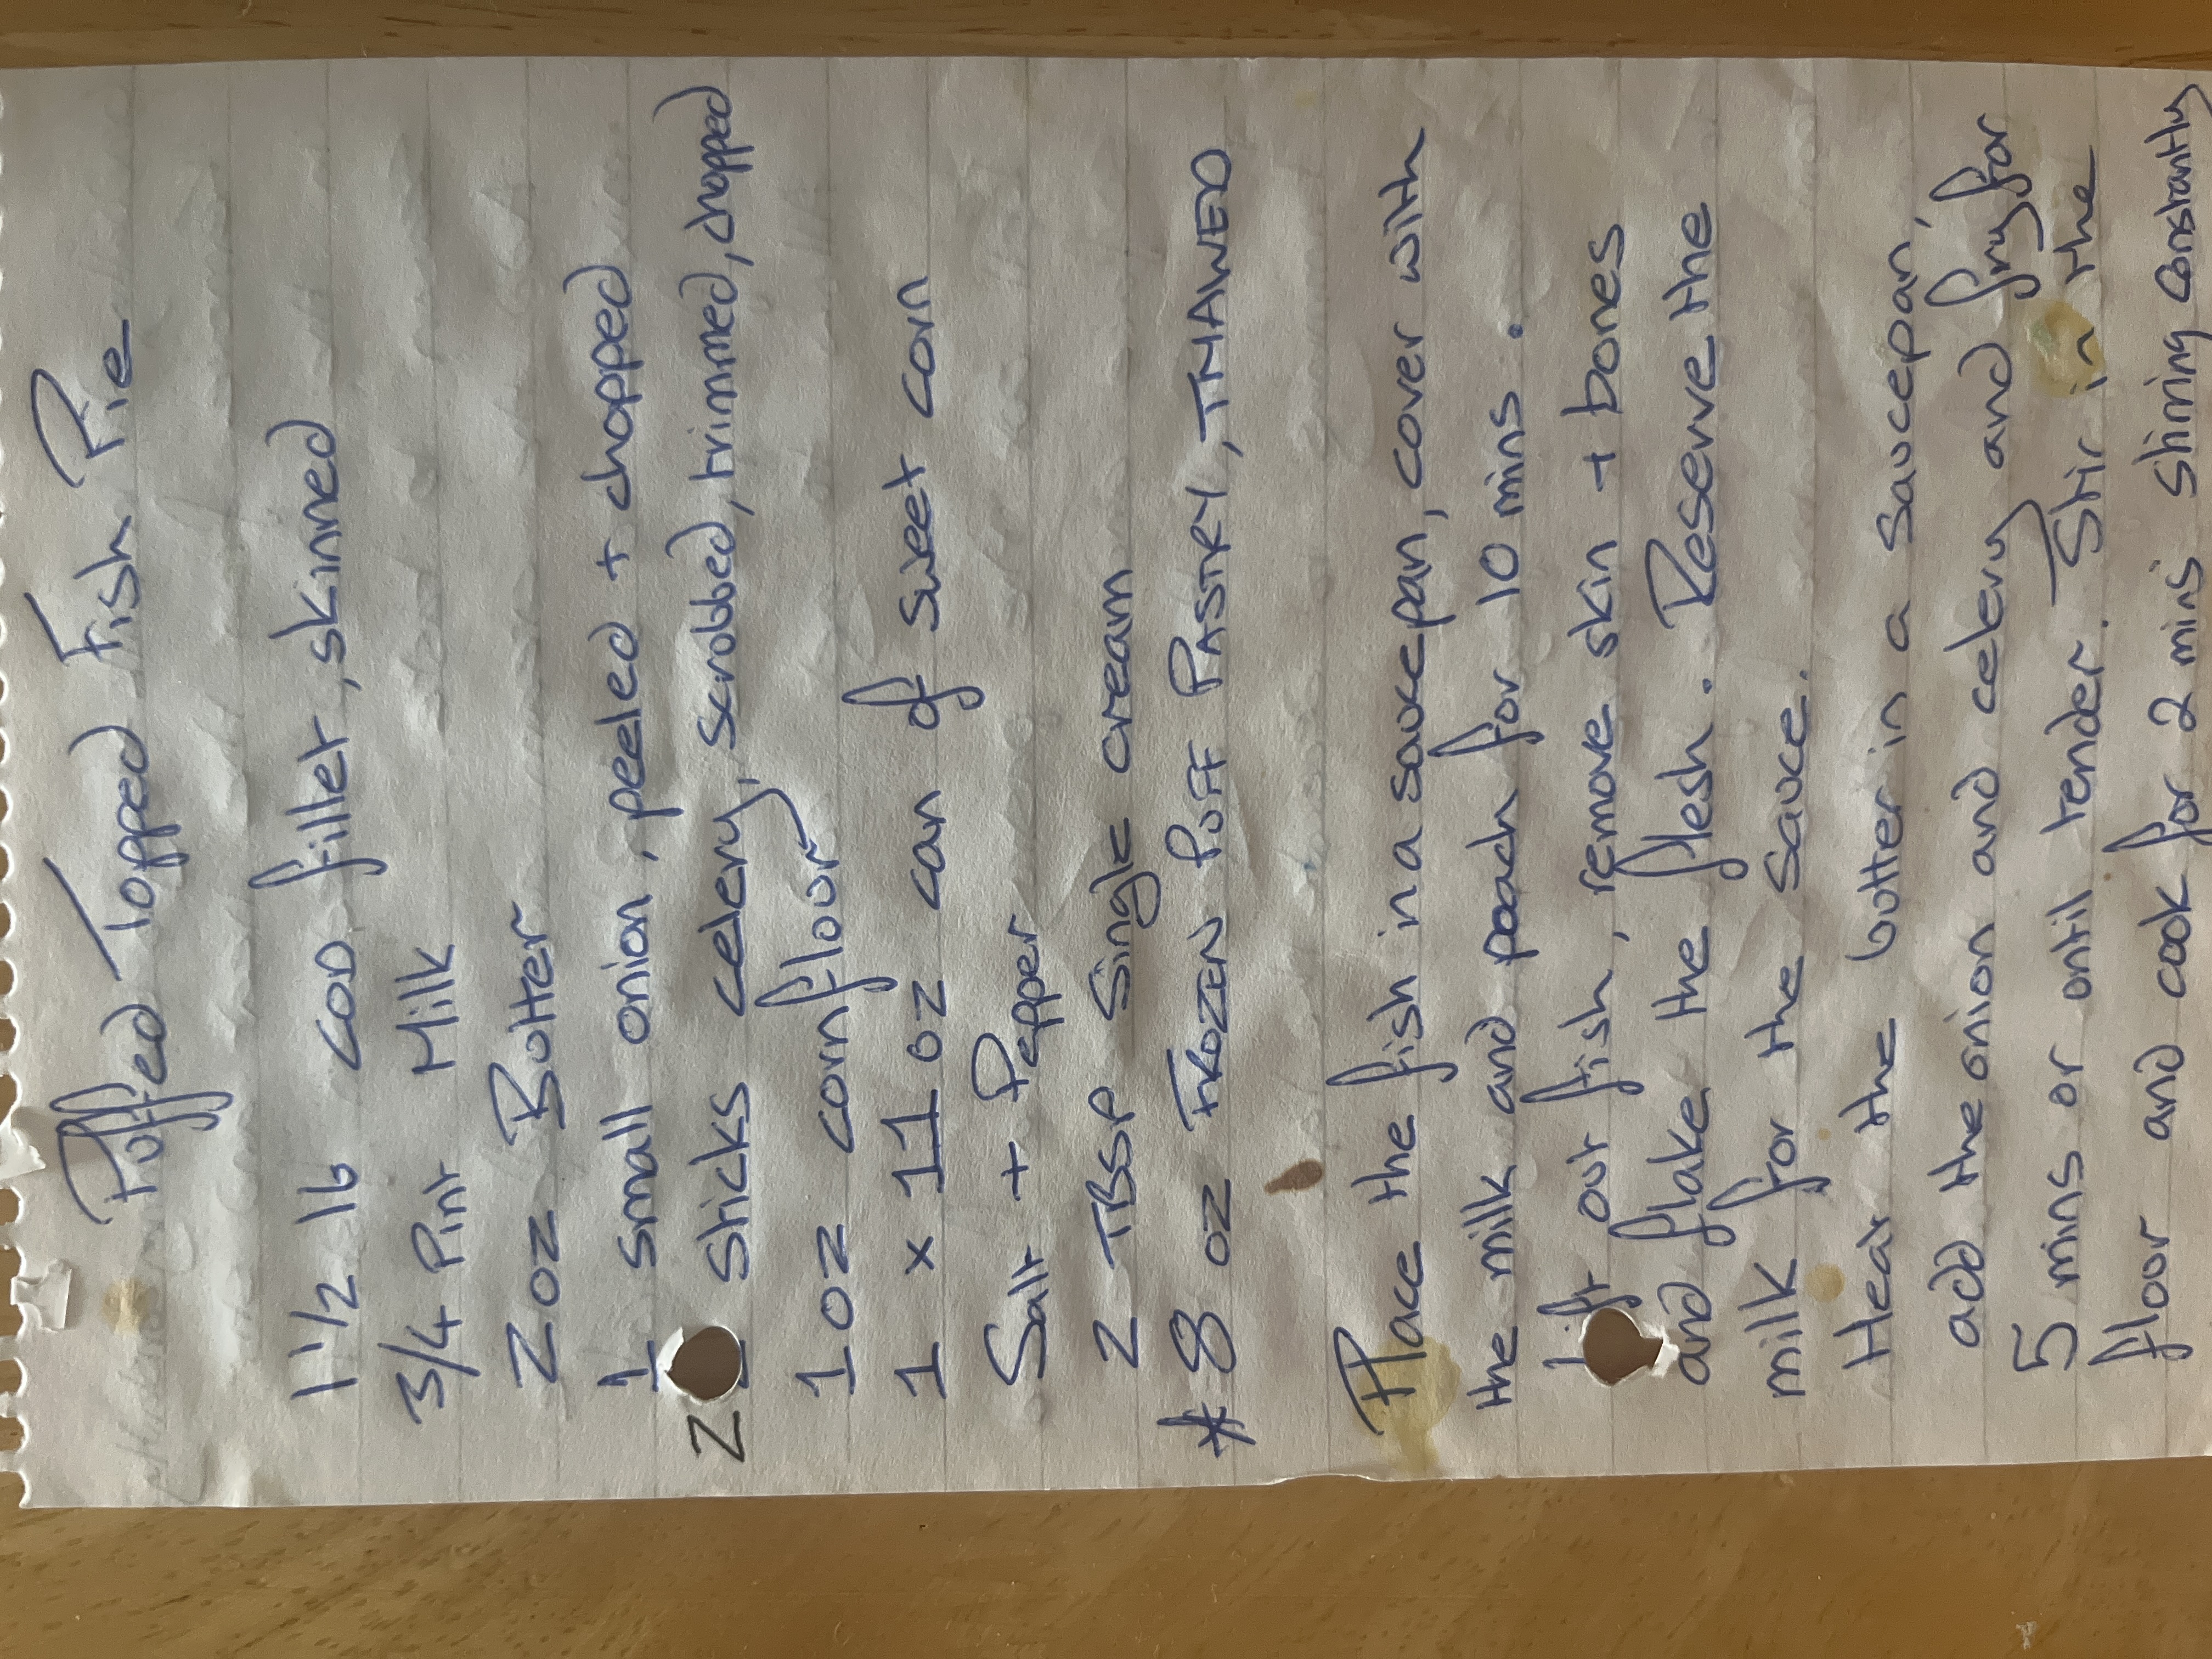 Puffed Topped Fish Pie
1 1/2 lb COD fillet, skinned
3/4 Pint Milk
2 oz Butter
1 small onion, peeled + chopped
2 sticks celery, scrubbed, trimmed, chopped
1 oz cornflour
1 x 11 oz can of sweet corn
Salt + Pepper
2 TBSP Single cream
* 8 oz FROZEN PUFF PASTRY, THAWED
Place the fish in a saucepan, cover with
the milk and poach for 10 mins.
Lift out fish, remove skin + bones
and flake the flesh. Reserve the
milk for the sauce.
Heat the butter in a saucepan,
add the onion and celery and fry for
5 mins or until tender. Stir in the
flour and cook for 2 mins stirring constantly